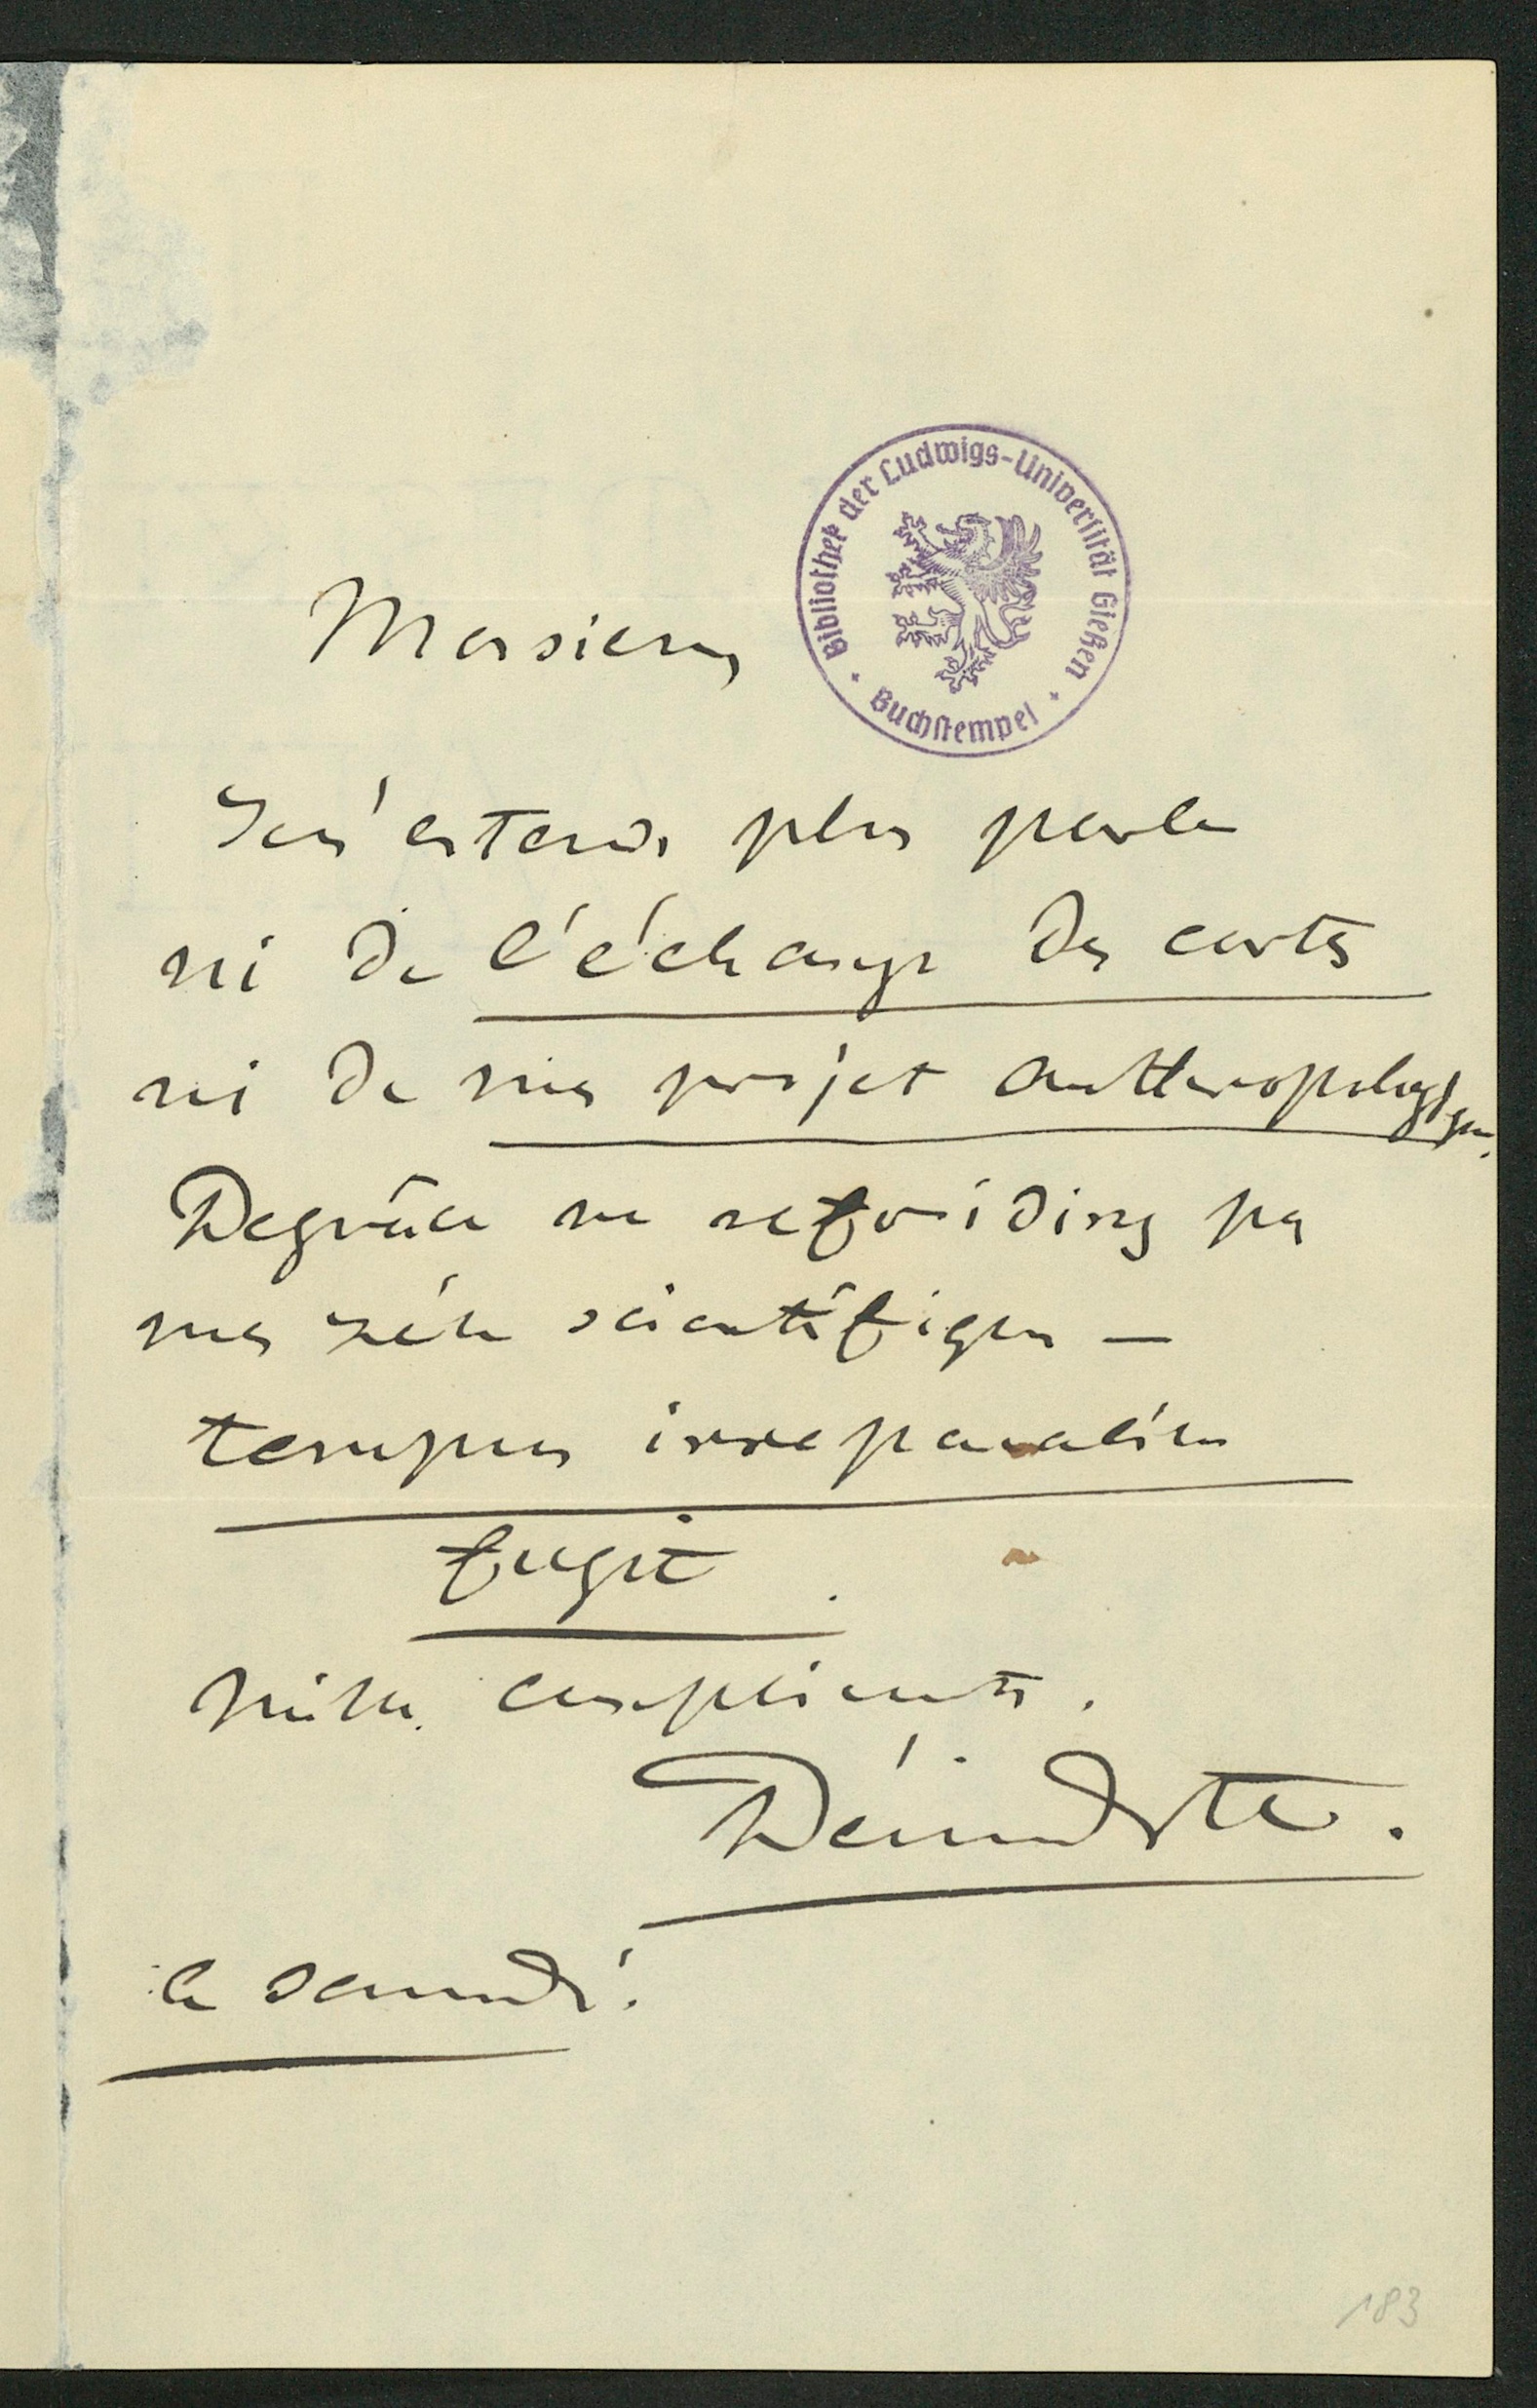 Monsieur
Bibliothek der Ludwigs-Universität Gießen
Buchstempel
Je n'entends plus parler
ni de l'échange des cartes
ni de mes projet anthropologique.
De grâce ne refroidissez pas
mes zèle scientifique —
tempus irreparabile
fugit.
Mille compliments.
le samedi.
183